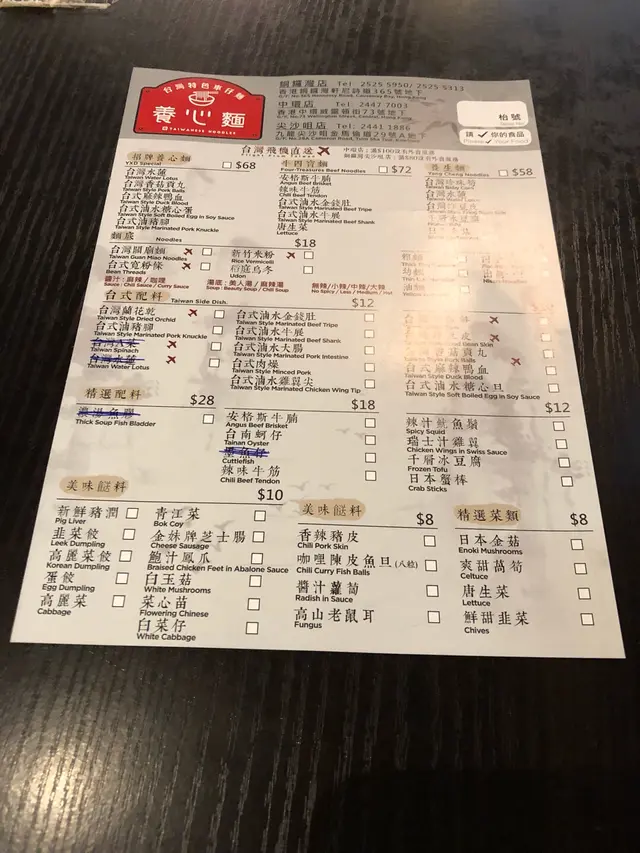 台灣特色車仔麵
養心麵
TAIWANESE NOODLES
銅鑼灣店 Tel: 2525 5950/ 2525 5313
香港銅鑼灣軒尼詩道365號地下
中環店 Tel: 2447 7003
香港中環威靈頓街73號地下
尖沙咀店 Tel: 2441 1886
枱號
請 ✓ 你的食品
Please ✓ Your Food
台灣飛機直送
招牌養心麵 $68
YXD Special
台灣水蓮
Taiwan Water Lotus
台灣香菇貢丸
Taiwan Style Pork Balls
台式麻辣鴨血
Taiwan Style Duck Blood
台式滷水糖心蛋
Taiwan Style Soft Boiled Egg in Soy Sauce
台式滷豬腳
Taiwan Style Marinated Pork Knuckle
牛四寶麵 $72
Four-Treasures Beef Noodles
安格斯牛腩
Angus Beef Brisket
辣味牛筋
Chili Beef Tendon
台式滷水金錢肚
Taiwan Style Marinated Beef Tripe
台式滷水牛展
Taiwan Style Marinated Beef Shank
唐生菜
Lettuce
養生麵 $58
Yang Cheng Noodles
台灣水蓮
麵底 Noodles $18
台灣關廟麵
Taiwan Guan Miao Noodles
台式寬粉條
Bean Threads
新竹米粉
Rice Vermicelli
稻庭烏冬
Udon
粗麵
幼麵
油麵
醬汁：麻辣 / 咖哩
Sauce : Chili Sauce / Curry Sauce
湯底：美人湯 / 麻辣湯
Soup : Beauty Soup / Chili Soup
無辣/小辣/中辣/大辣
No Spicy / Less / Medium / Hot
台式配料 Taiwan Side Dish $12
台灣蘭花乾
Taiwan Style Dried Orchid
台式滷豬腳
Taiwan Style Marinated Pork Knuckle
Taiwan Spinach
台灣水蓮
Taiwan Water Lotus
台式滷水金錢肚
Taiwan Style Marinated Beef Tripe
台式滷水牛展
Taiwan Style Marinated Beef Shank
台式滷水大腸
Taiwan Style Marinated Pork Intestine
台式肉燥
Taiwan Style Minced Pork
台式滷水雞翼尖
Taiwan Style Marinated Chicken Wing Tip
Bean Skin
香菇貢丸
Taiwan Style Pork Balls
台式麻辣鴨血
Taiwan Style Duck Blood
台式滷水糖心旦
Taiwan Style Soft Boiled Egg in Soy Sauce
精選配料 $28
Thick Soup Fish Bladder
$18
安格斯牛腩
Angus Beef Brisket
台南蚵仔
Tainan Oyster
墨魚仔
Cuttlefish
辣味牛筋
Chili Beef Tendon
$12
辣汁魷魚鬚
Spicy Squid
瑞士汁雞翼
Chicken Wings in Swiss Sauce
千層冰豆腐
Frozen Tofu
日本蟹棒
Crab Sticks
美味餸料 $10
新鮮豬潤
Pig Liver
韭菜餃
Leek Dumpling
高麗菜餃
Korean Dumpling
蛋餃
Egg Dumpling
高麗菜
Cabbage
青江菜
Bok Coy
金妹牌芝士腸
Cheese Sausage
鮑汁鳳爪
Braised Chicken Feet in Abalone Sauce
白玉菇
White Mushrooms
菜心苗
Flowering Chinese
白菜仔
White Cabbage
美味餸料 $8
香辣豬皮
Chili Pork Skin
咖哩陳皮魚旦(八粒)
Chili Curry Fish Balls
醬汁蘿蔔
Radish in Sauce
高山老鼠耳
Fungus
精選菜類 $8
日本金菇
Enoki Mushrooms
爽甜萵筍
Celtuce
唐生菜
Lettuce
鮮甜韭菜
Chives